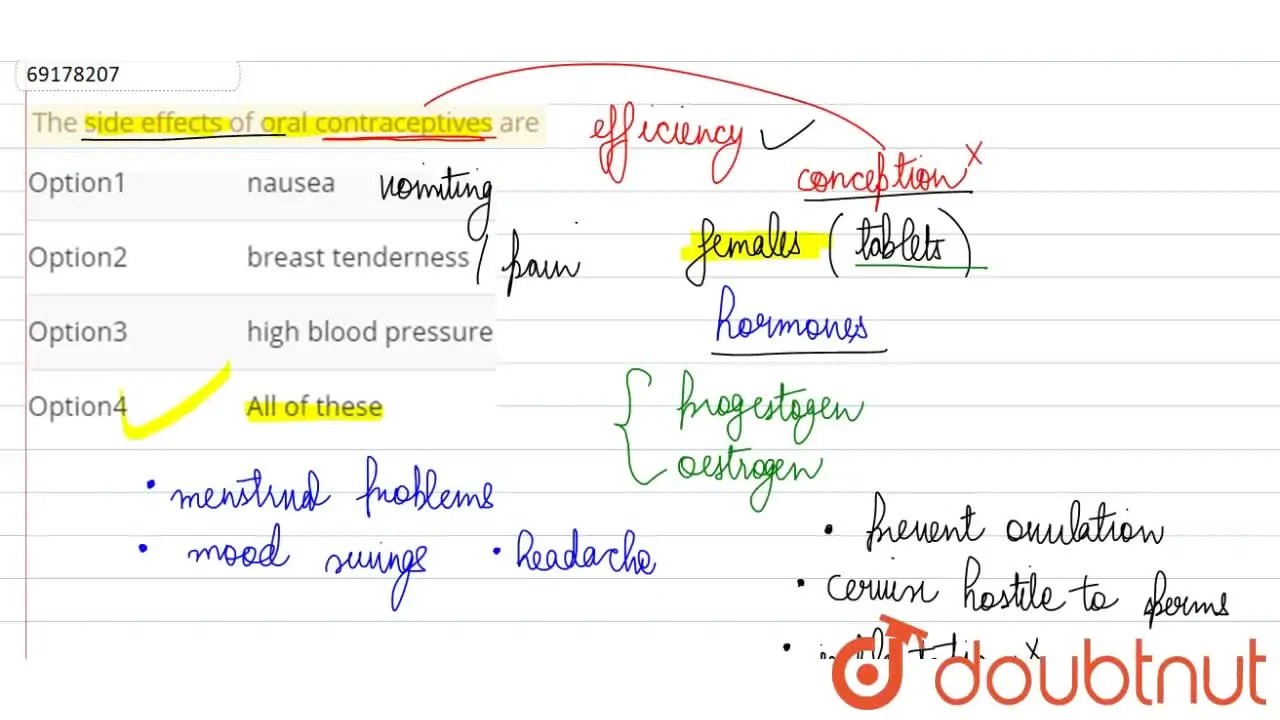 69178207
The side effects of oral contraceptives are
efficiency ✓
conception x
Option1 nausea vomiting
females (tablets)
Option2 breast tenderness / pain
hormones
Option3 high blood pressure
progestogen
Option4 All of these
oestrogen
• menstrual problems
• prevent ovulation
• mood swings • headache
• cervix hostile to sperms
• x
doubtnut